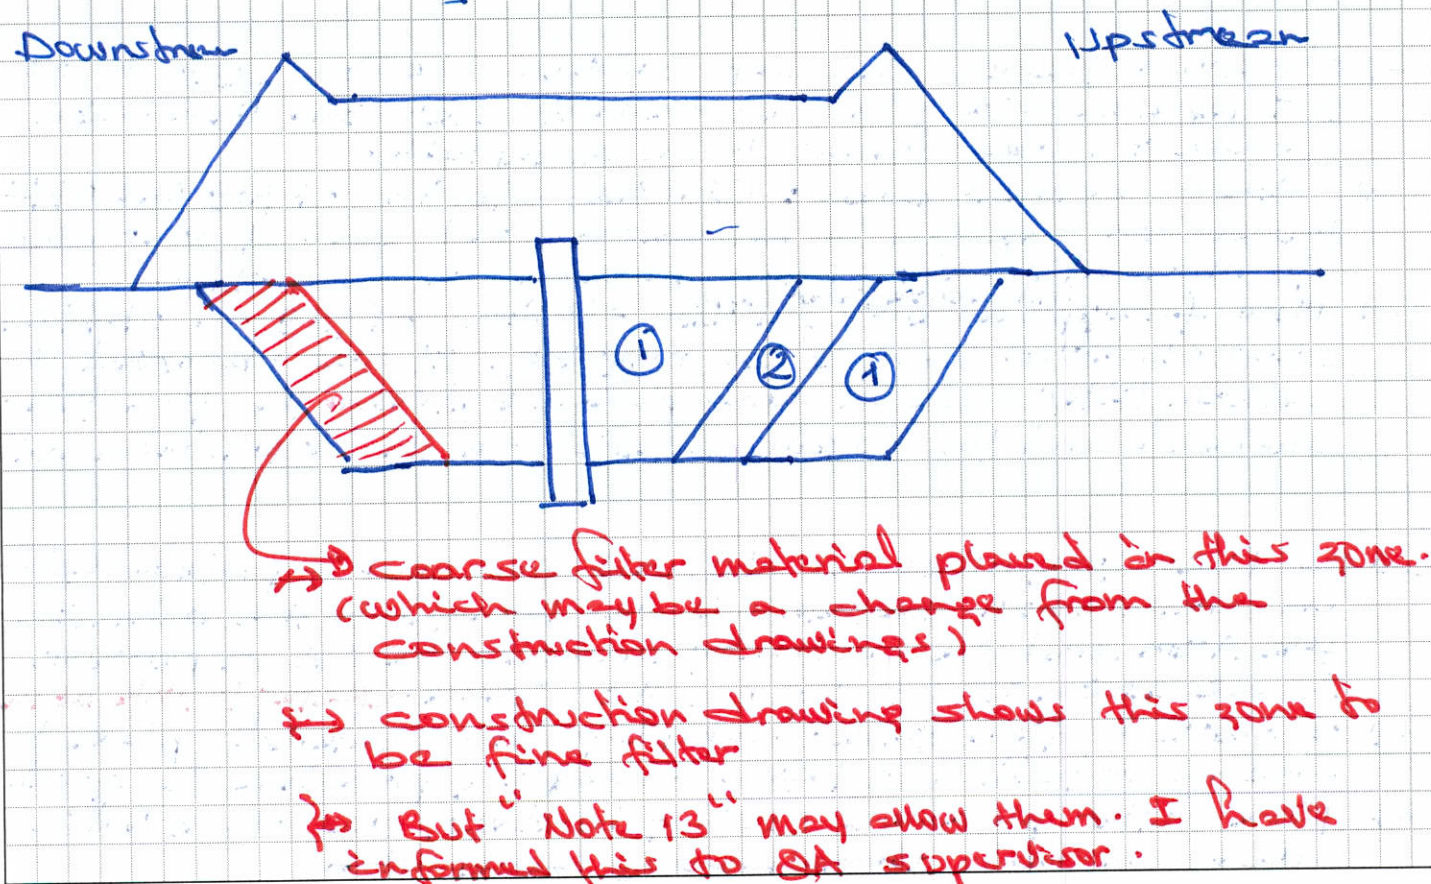 Downstream
Upstream
① ② ①
coarse filter material placed in this zone.
(which may be a change from the
construction drawings)
construction drawing shows this zone to
be fine filter
But "Note 13" may allow them. I have
informed this to QA supervisor.